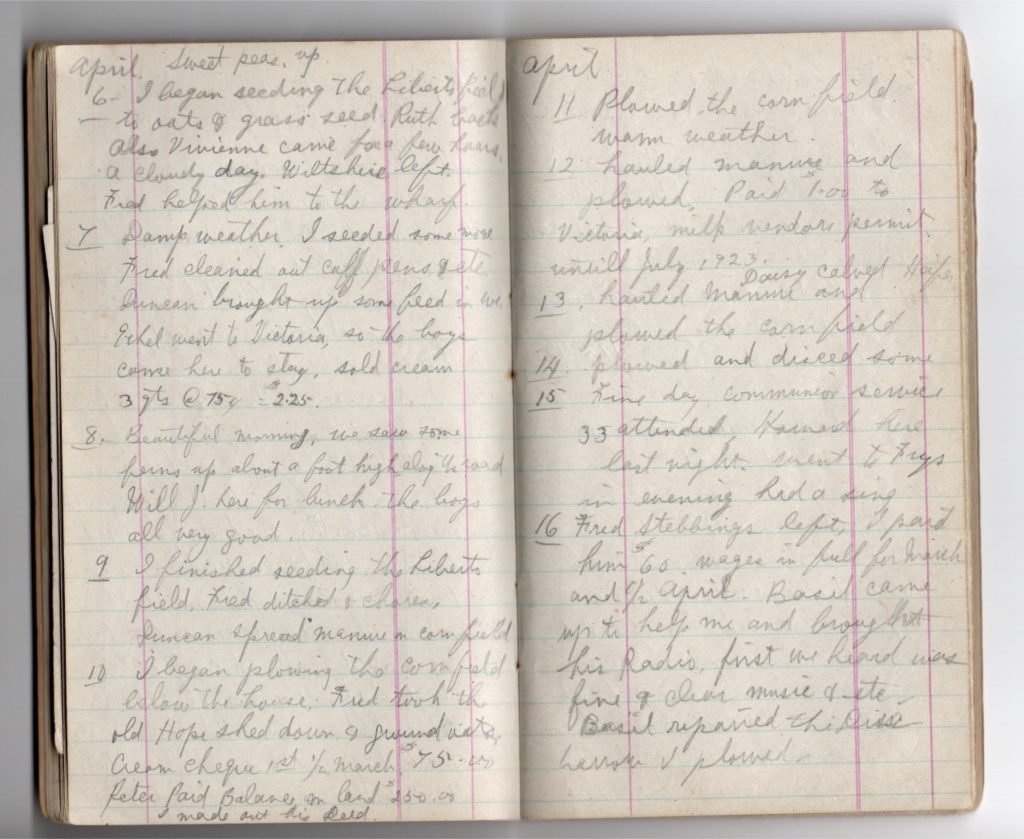 April. Sweet peas. up
6- I began seeding the Liberto field
to oats & grass seed. Ruth back
Also Vivienne came for a few hours.
a cloudy day. Wiltshire left.
Fred helped him to the wharf.
7 Damp weather. I seeded some more
Fred cleaned out calf pens & etc
Duncan brought up some feed in
Ethel went to Victoria, so the boys
came here to stay, sold cream
3 qts @ 75¢ = $2.25.
8. Beautiful morning, we saw some
ferns up about a foot high, along the road
Will J. here for lunch. the boys
all very good.
9 I finished seeding the Liberto
field. Fred ditched & chores,
Duncan spread manure on corn field
10 I began plowing the cornfield
below the house. Fred took the
old Hope shed down & ground oats.
Cream cheque 1st ½ March, $75.00
Peter Paid Balance on land $250.00
I made out his Deed
April
11 Plowed the corn field.
warm weather.
12 hauled manure and
plowed. Paid $1.00 to
Victoria, milk vendors permit.
untill July 1923.
Daisy calved Heifer
13. hauled manure and
plowed the corn field
14. plowed and disced some
15 Fine day, communion service
33 attended. Howard here
last night. went to Frys
in evening had a sing
16 Fred Stebbings left, I paid
him $60. wages in full for March
and ½ April. Basil came
up to help me and brought
his Radio, first we heard was
fine & clear music & etc
Basil repaired the Disc
harrow I plowed.